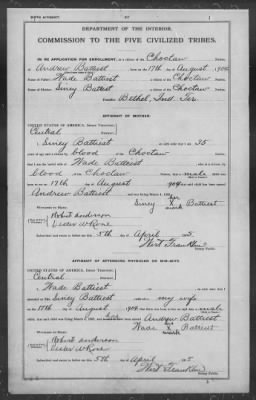 BIRTH AFFIDAVIT.
DEPARTMENT OF THE INTERIOR.
COMMISSION TO THE FIVE CIVILIZED TRIBES.
IN RE APPLICATION FOR ENROLLMENT, as a citizen of the Choctaw Nation,
of Andrew Battiest, born on the 17th day of August, 1904
Name of Father: Wade Battiest a citizen of the Choctaw Nation.
Name of Mother: Siney Battiest a citizen of the Choctaw Nation.
Bethel, Ind. Ter.
AFFIDAVIT OF MOTHER.
UNITED STATES OF AMERICA, Indian Territory,
Central
I, Siney Battiest, on oath state that I am 35
years of age and a citizen by blood of the Choctaw Nation;
that I am the lawful wife of Wade Battiest, who is a citizen, by
blood of the Choctaw Nation; that a male child was
born to me on 17th day of August, 1904, that said child has been named
Andrew Battiest, and was living March 4, 1905.
Siney her x mark Battiest
Witnesses to Mark:
Robert Anderson
Subscribed and sworn to before me this 5th day of April, 1905.
Wirt Franklin
Notary Public.
AFFIDAVIT OF ATTENDING PHYSICIAN OR MID-WIFE.
UNITED STATES OF AMERICA, Indian Territory,
Central
I, Wade Battiest
Siney Battiest, my wife
on the 17th day of August, 1904, male
child was living March 4, 1905, and is said to have been named Andrew Battiest
Wade his x mark Battiest
Witnesses to Mark:
Robert Anderson
Subscribed and sworn to before me this 5th day of April, 1905.
Wirt Franklin
Notary Public.